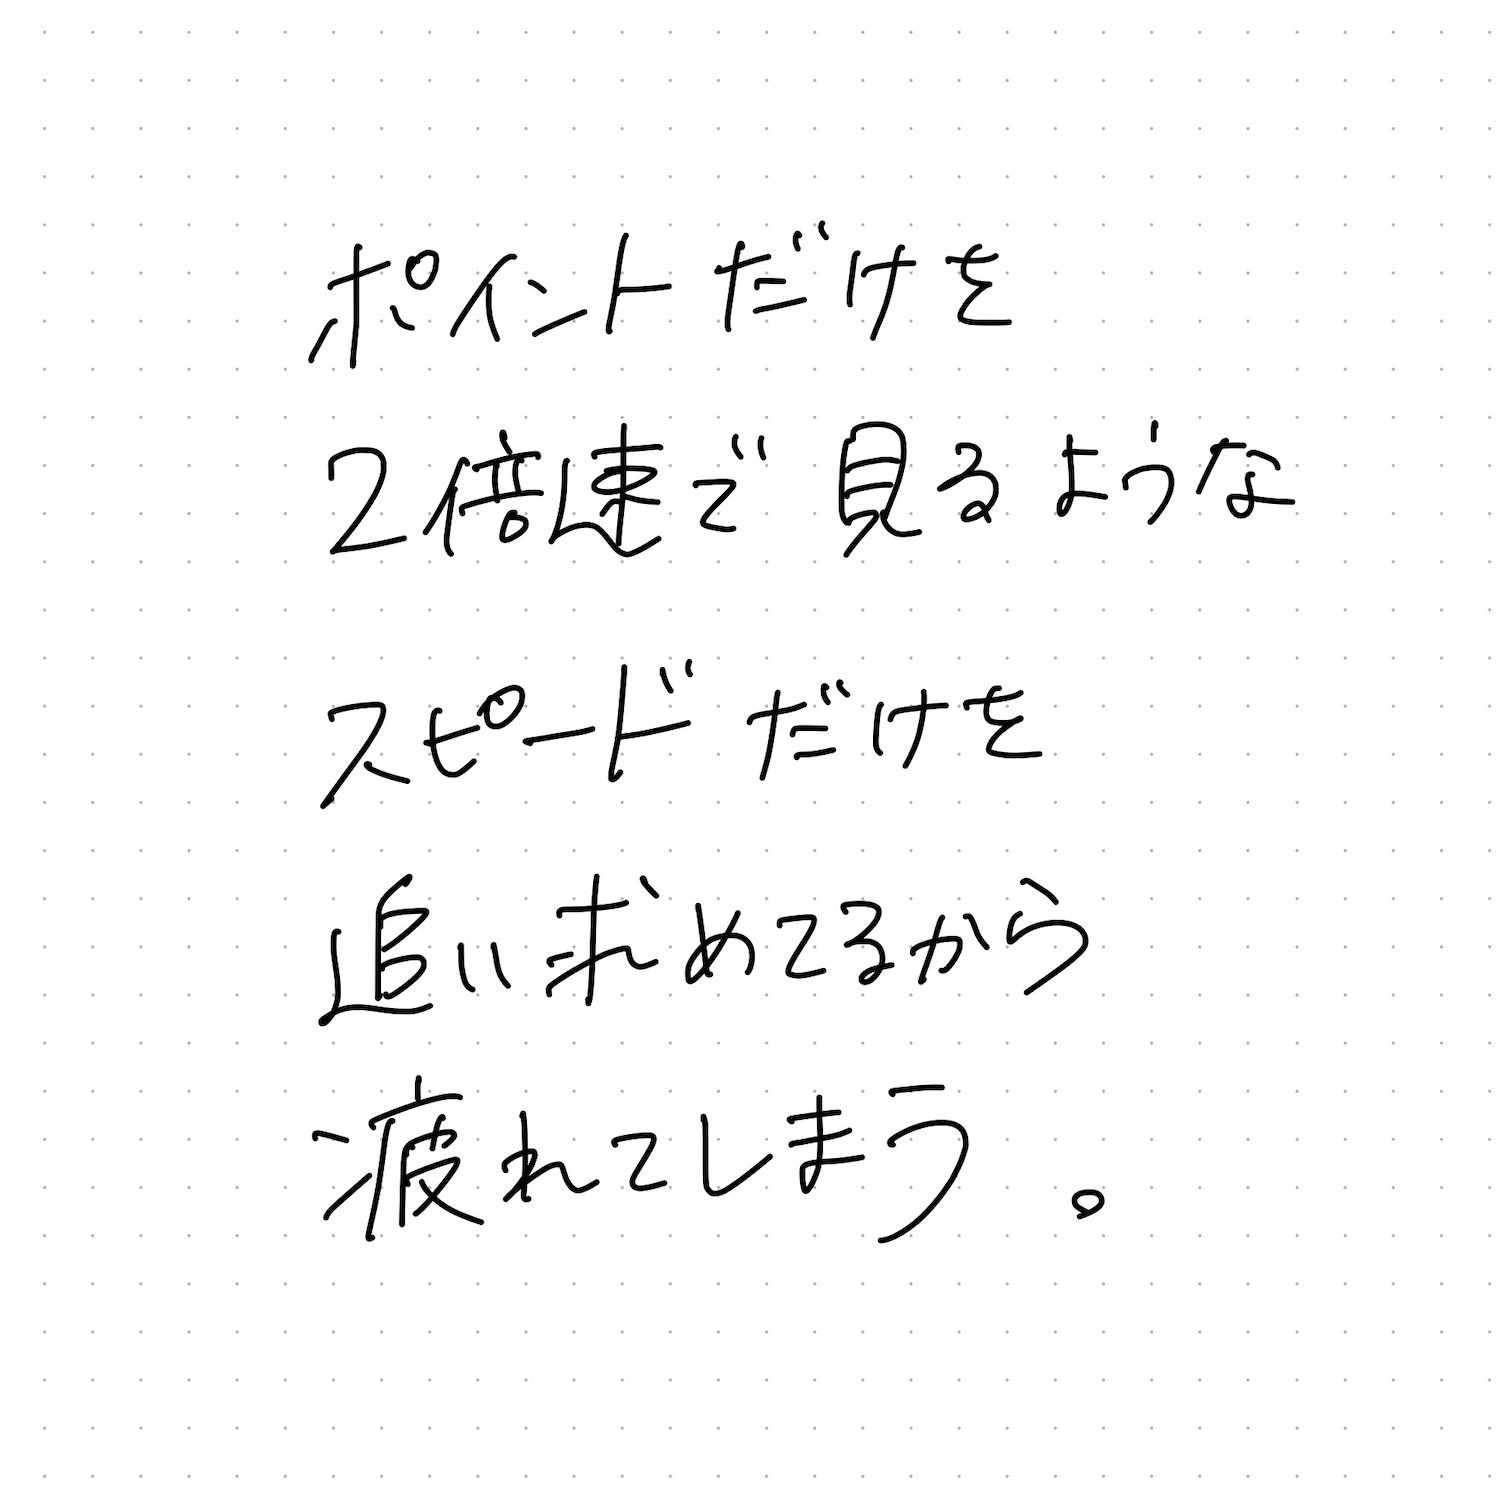 ポイントだけを
2倍速で見るような
スピードだけを
追い求めてるから
疲れてしまう。